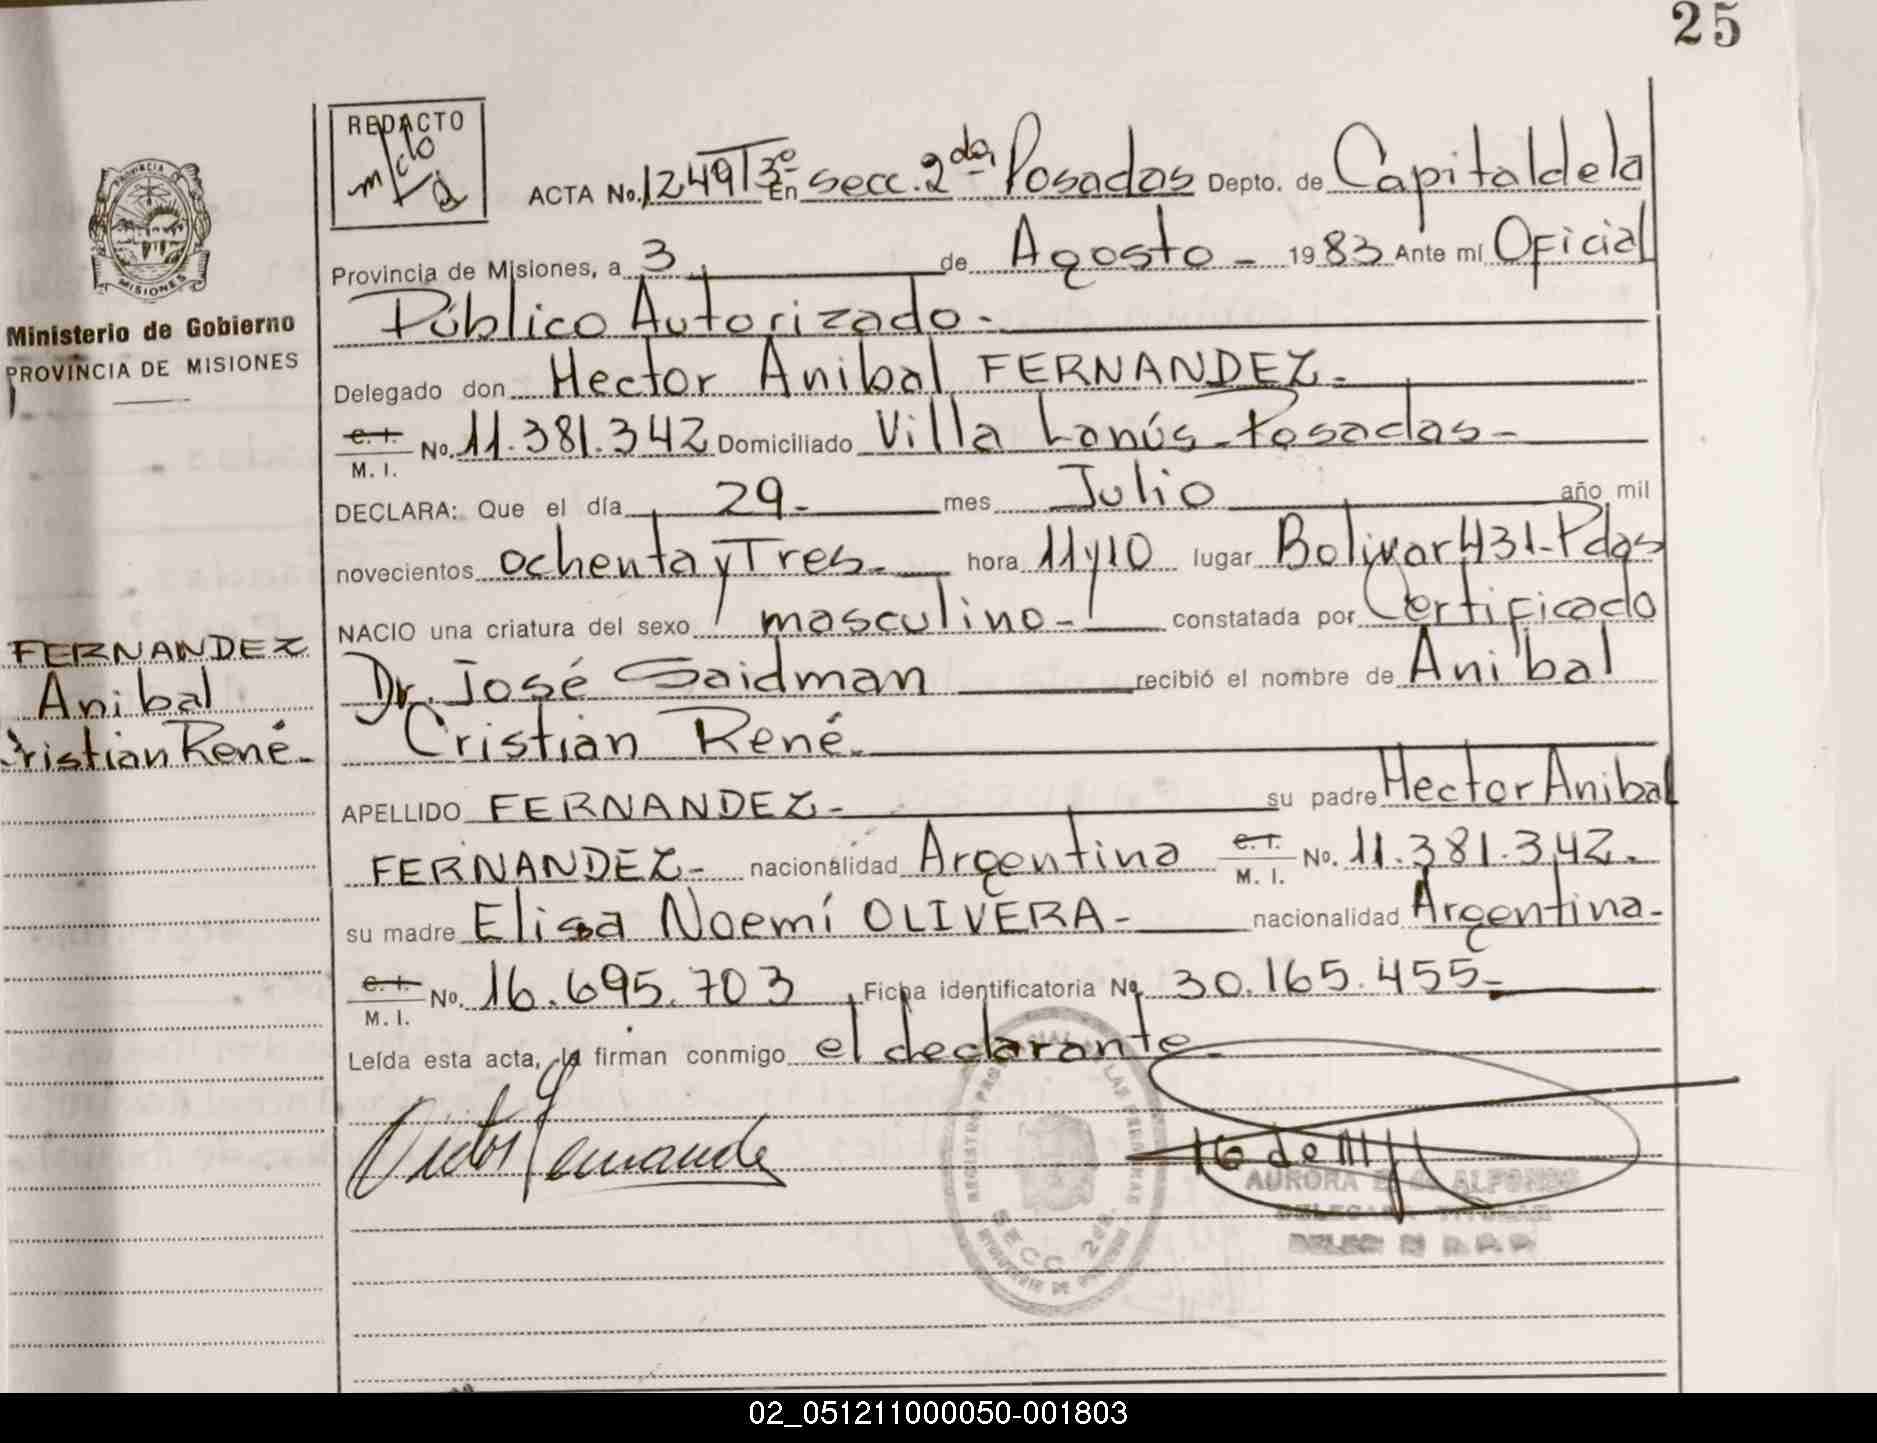 25
REDACTO
ACTA No. 1249 T3º En secc. 2da Posadas Depto. de Capital de la
Provincia de Misiones, a 3 de Agosto - 1983 Ante mí Oficial
Público Autorizado -
Delegado don Hector Anibal FERNANDEZ -
C. I. M. I. No. 11.381.342 Domiciliado Villa Lanús - Posadas -
DECLARA: Que el día 29 - mes Julio año mil
novecientos ochenta y Tres - hora 11 y 10 lugar Bolivar 431 - Pdas
NACIO una criatura del sexo masculino - constatada por Certificado
Dr. José Saidman recibió el nombre de Anibal
Cristian René -
APELLIDO FERNANDEZ - su padre Hector Anibal
FERNANDEZ - nacionalidad Argentina C. I. M. I. No. 11.381.342 -
su madre Elisa Noemí OLIVERA - nacionalidad Argentina -
C. I. M. I. No. 16.695.703 Ficha identificatoria No 30.165.455 -
Leída esta acta, la firman conmigo el declarante -
PROVINCIA
MISIONES
Ministerio de Gobierno
PROVINCIA DE MISIONES
FERNANDEZ
Anibal
Cristian René -
SECC 2da.
AURORA DE ALFONSO
DELEGADA TITULAR
02_051211000050-001803